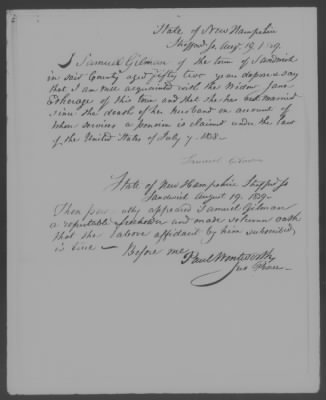 State of New Hampshire
Strafford Ss. Augt 19, 1839.
I Samuel Gilman of the town of Sandwich
in said County aged fifty two years depose & say
that I am well acquainted with the Widow Jane
Etherage of this town and that she has not married
since the death of her husband on account of
whose services a pension is claimed under the Law
of the United States of July 7 1838.
Samuel Gilman
State of New Hampshire Strafford Ss
Sandwich August 19. 1839.
Then personally appeared Samuel Gilman
a reputable freeholder and made solemn oath
that the above affidavit by him subscribed,
is true — Before me,
Paul Wentworth
Jus Peace